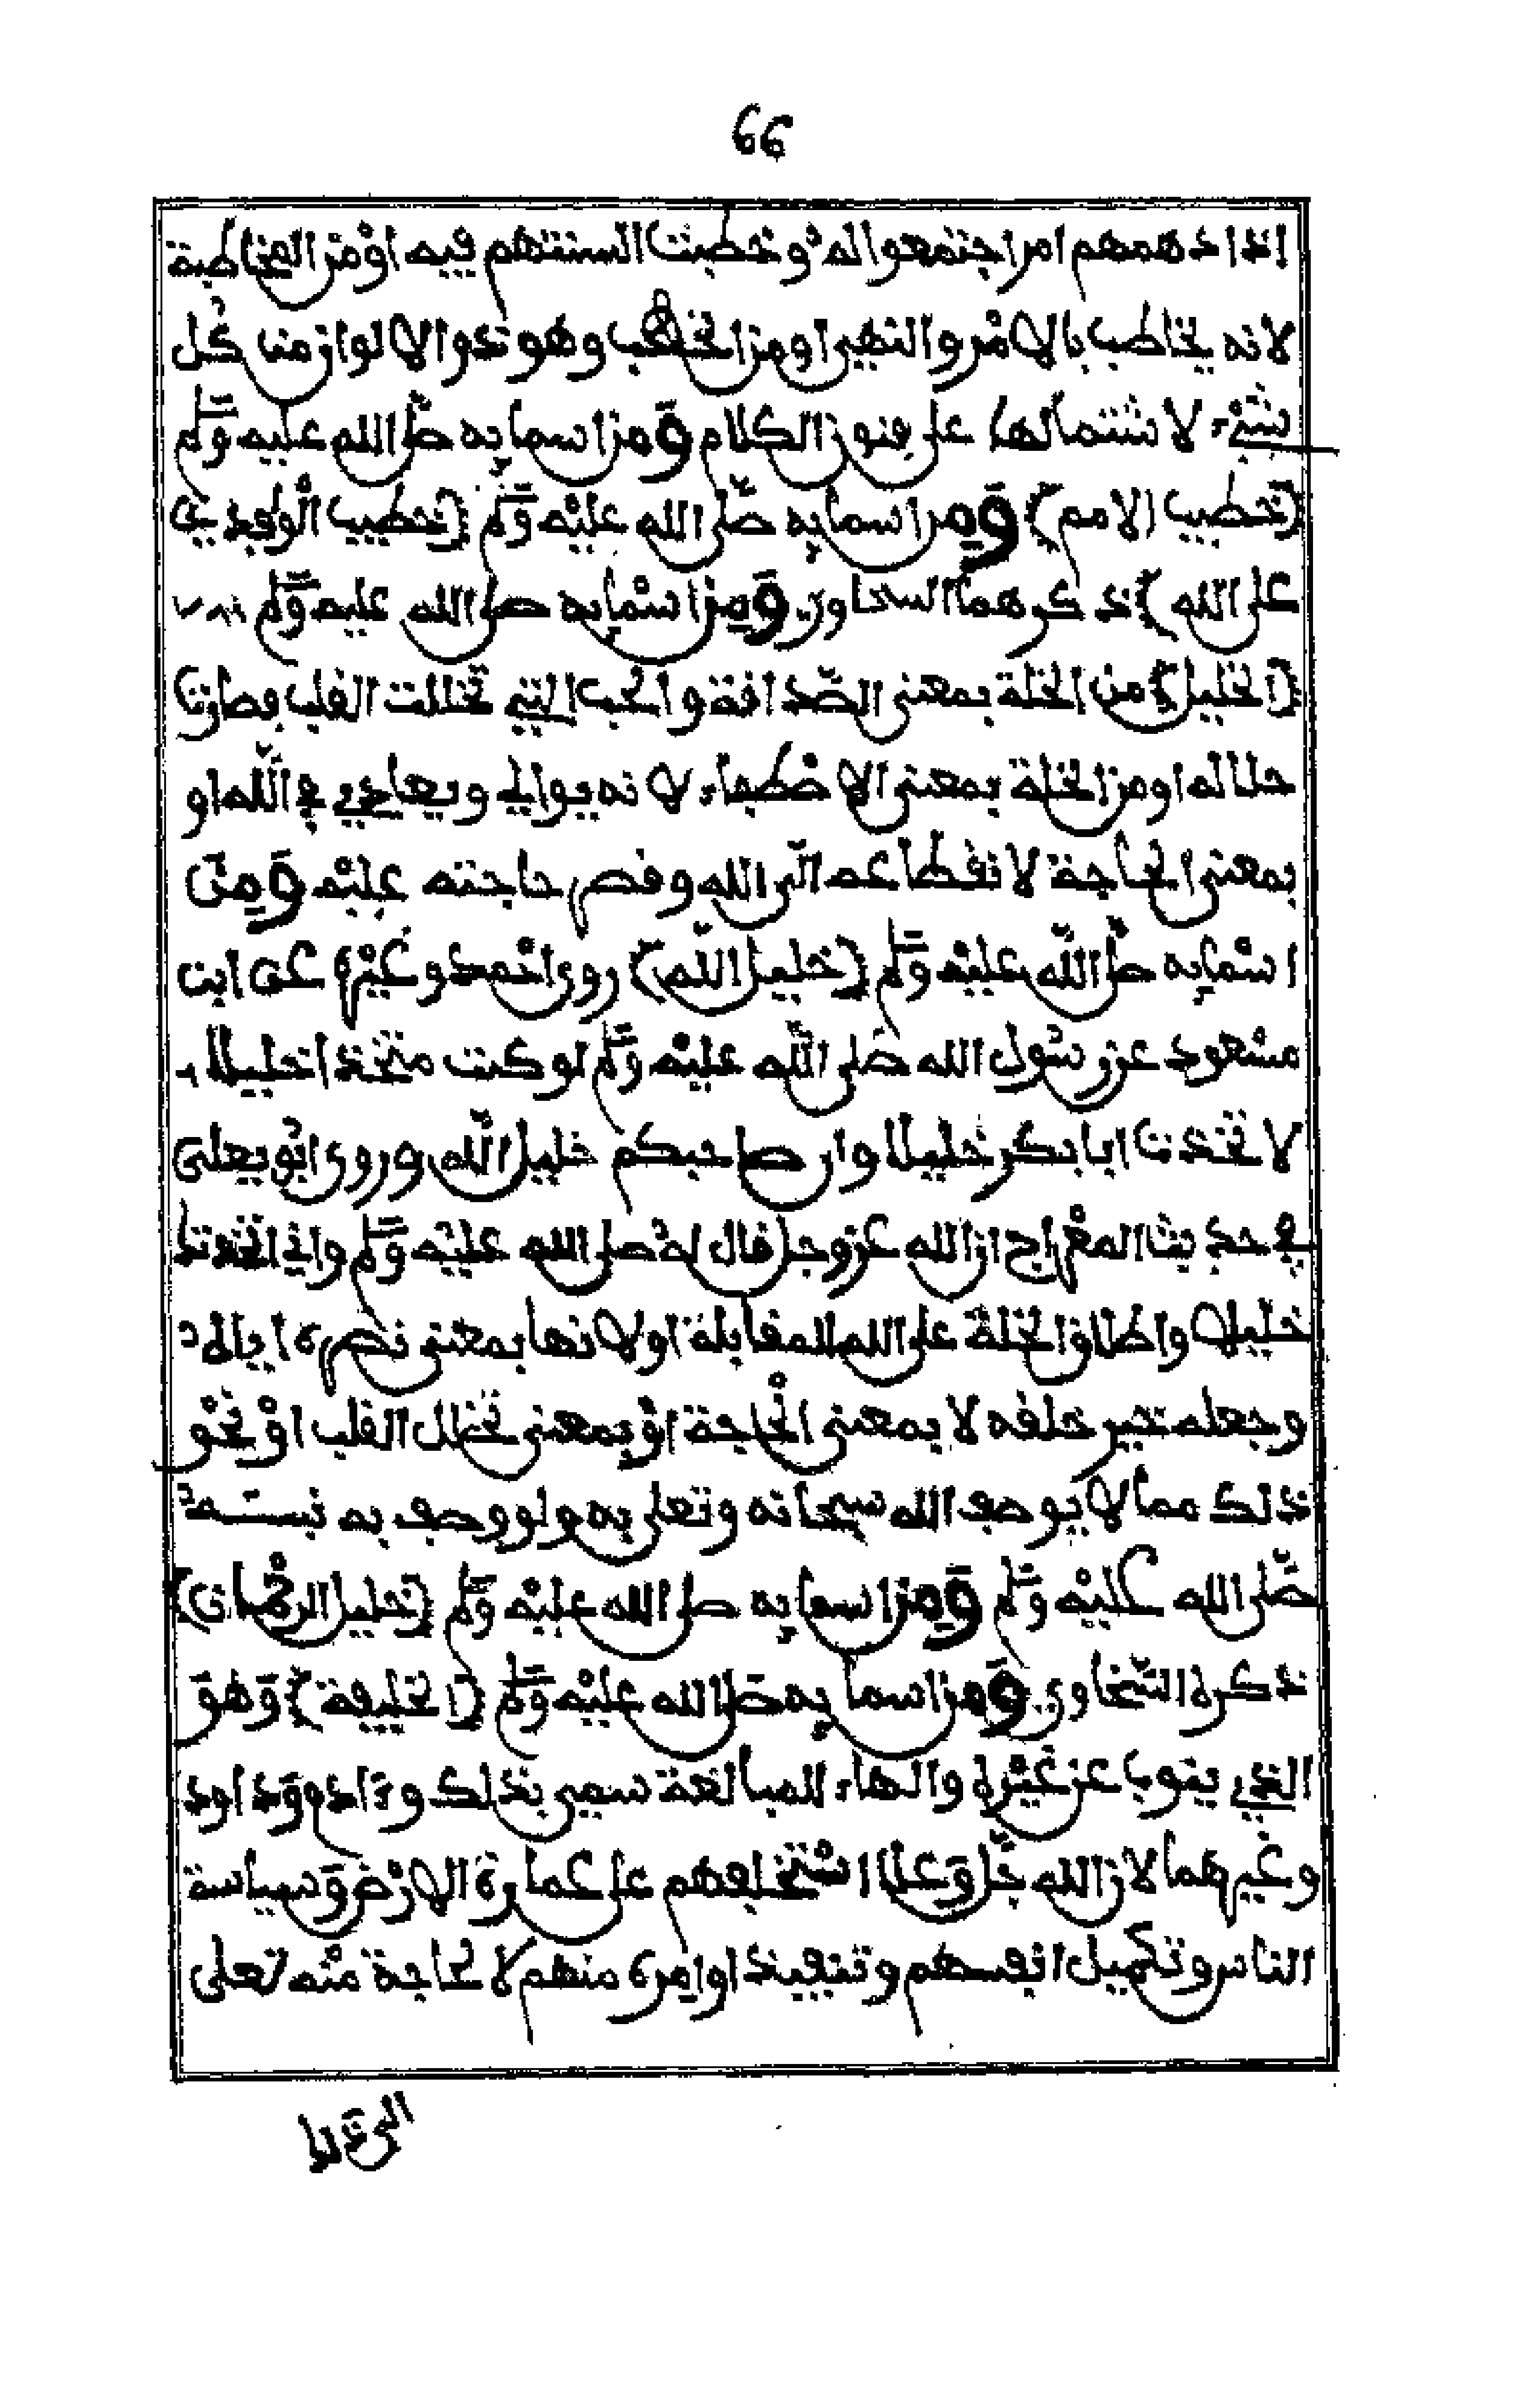 66
اذا دهمهم امر اجتمعوا له وخطبت السنتهم فيه اوْ من المخاطبة
لانه يخاطب بالامْر والنهي او من الخطب وهو ذو الالوان من كل
شيْء لاشتمالها على فنون الكلام وَمن اسمايه صلى الله عليه وسلم
(خطيب الامم) وَمن اسمايه صلى الله عليْه وسلم (خطيب الوافدين
على الله) ذكرهما السخاوي وَمِن اسْمايه صلى الله عليه وسلم
(الخليل) من الخلة بمعنى الصداقة والحب التي تخللت القلب وصارت
خلاله او من الخلة بمعنى الاصْطفاء لانه يوالي ويعادي في الله او
بمعنى الحاجة لانقطاعه الى الله وقصر حاجته عليْه وَمِن
اسْمايه صلى الله عليْه وسلم (خليل الله) روى احْمد وغيْره عن ابن
مسْعود عن رسُول الله صلى الله عليْه وسلم لو كنت متخذا خليلا
لاتخذت ابا بكر خليلا وان صاحبكم خليل الله وروى ابُو يعلى
في حديث المعْراج ان الله عز وجل قال لهُ صلى الله عليْه وسلم واني اتخذتك
خليلا واطلاق الخلة على الله للمقابلة او لانها بمعنى نصره اياهُ
وجعله خير خلقه لا بمعنى الْحاجة اوْ بمعنى تخلل القلب اوْ نحْو
ذلك مما لا يوصف الله سبحانه وتعلى به ولو وصف به نبيه
صلى الله عليْه وسلم وَمِن اسمايه صلى الله عليْه وسلم (خليل الرحْمان)
ذكره السخاوي وَمن اسمايه صلى الله عليْه وسلم (الخليفة) وَهوَ
الذي ينوب عن غيْره والهاء للمبالغة سمي بذلك وءادم وَداود
وغيرهما لان الله جل وَعلا اسْتخلفهم على عمارة الارْض وَسياسة
الناس وتكميل انفسهم وتنفيذ اوامره منهم لا لحاجة منْه تعلى